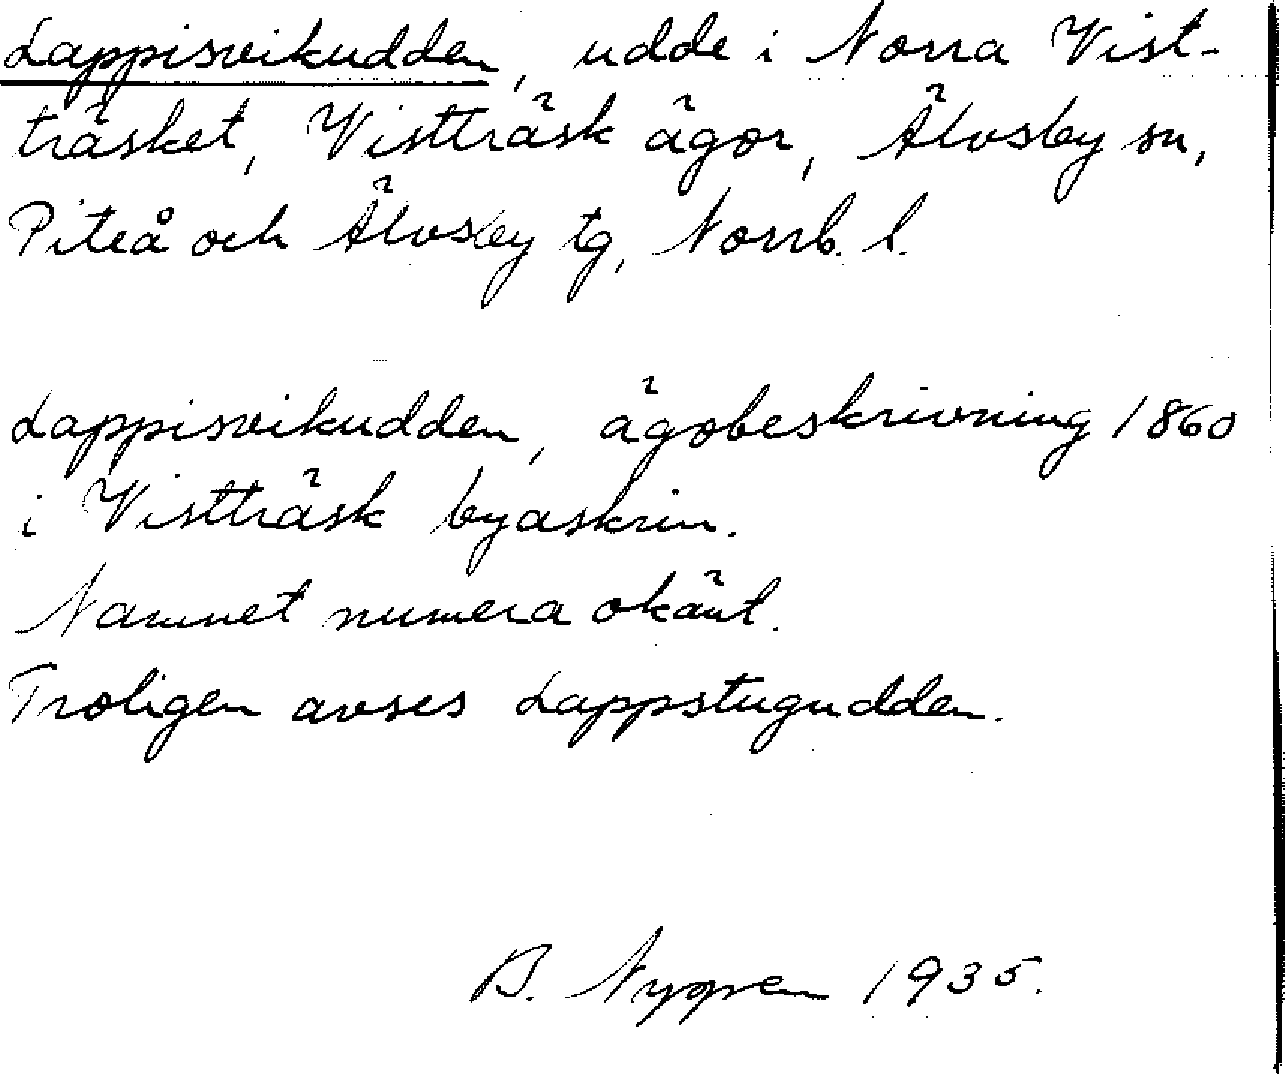 Lappisvikudden, udde i Norra Vist-
träsket, Vistträsk ägor, Älvsby sn,
Piteå och Älvsby tg, Norrb. l.
Lappisvikudden, ägobeskrivning 1860
i Vistträsk byaskrin.
Namnet numera okänt.
Troligen avses Lappstugudden.
B. Nygren 1935.